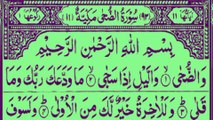 سُوْرَةُ الضُّحٰى مَكِّيَّةٌ
بِسْمِ اللّٰهِ الرَّحْمٰنِ الرَّحِيْمِ
وَالضُّحٰى ۙ وَالَّيْلِ اِذَا سَجٰى ۙ مَا وَدَّعَكَ رَبُّكَ وَمَا
قَلٰى ؕ وَلَلْاٰخِرَةُ خَيْرٌ لَّكَ مِنَ الْاُوْلٰى ؕ وَلَسَوْفَ